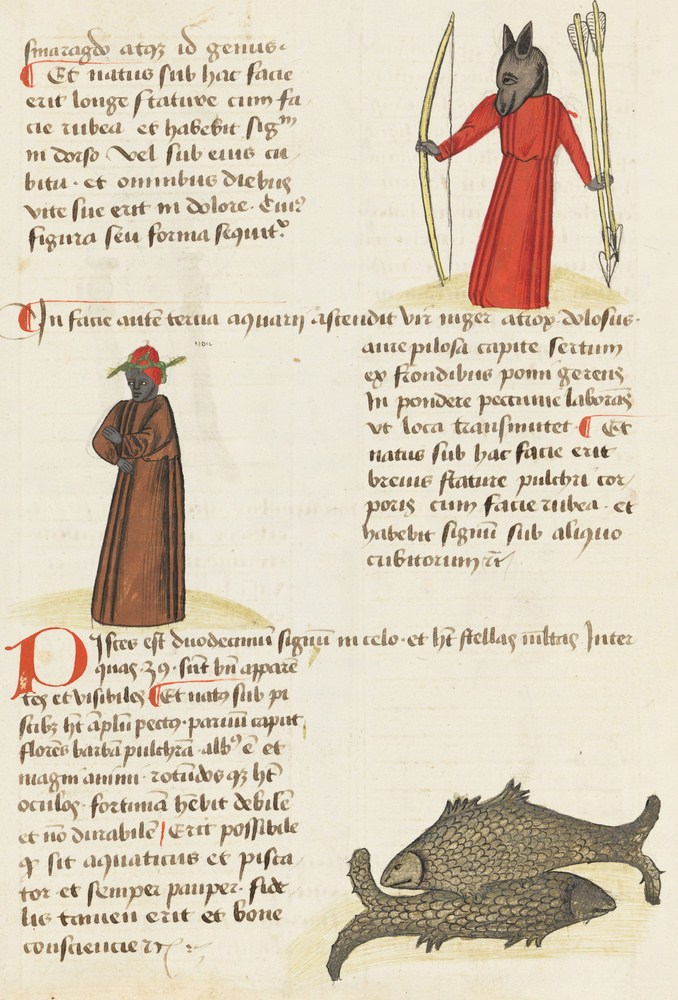 smaragdo atq; id genus·
¶ Et natus sub hac facie
erit longe stature cum fa
cie rubea et habebit sigᵐ
in dorso vel sub eius cu
bitu · et omnibus diebus
vite sue erit in dolore · Cuiꝰ
figura seu forma sequit᷑
¶ In facie autē tercia aquarij ascendit vir niger atrox dolosus·
aure pilosa capite sertum
ex frondibus pomi gerens
In pondere peccunie laborās
vt loca transmutet · ¶ Et
natus sub hac facie erit
breuis stature pulchri cor
poris cum facie rubea · et
habebit signū sub aliquo
cubitorum
PIsces est duodecimū signū in celo · et hꝫ stellas multas Inter
quas · 39 · sūt bñ apparē
tes et visibiles ¶ Et natꝰ sub pi
scibꝫ hꝫ āplū pectꝰ · paruū caput
florēs barbā pulchrā · albꝰ ē et
magni animi · rotūdos qꝫ hꝫ
oculos · fortunā hēbit debilē
et nō durabilē / Erit possibile
ꝙ sit aquaticus et pisca
tor et semper pauper · fide
lis tamen erit et bone
consciencie